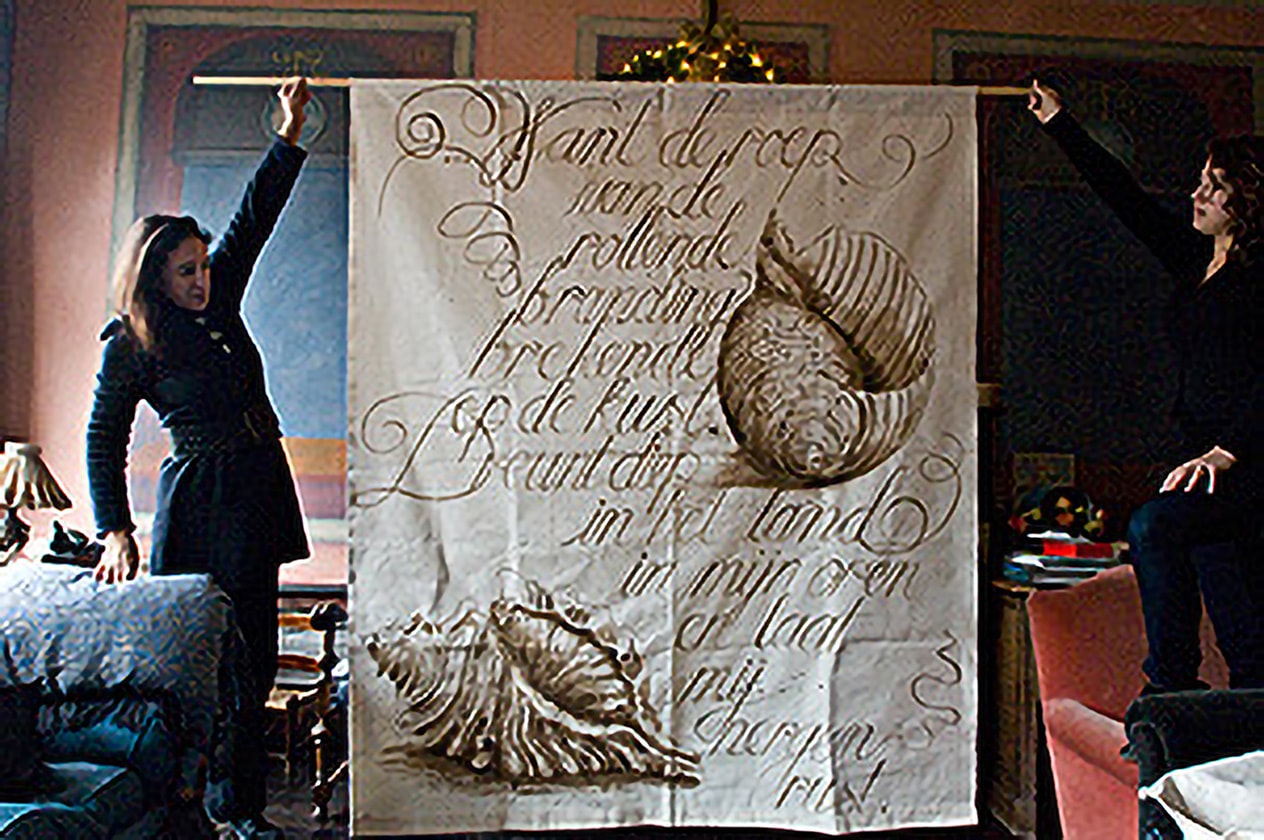 Want de roep
van de
rollende
branding
brekende
op de kust.
Dreunt diep
in het land
in mijn oren
en laat
mij
nergens
rust.